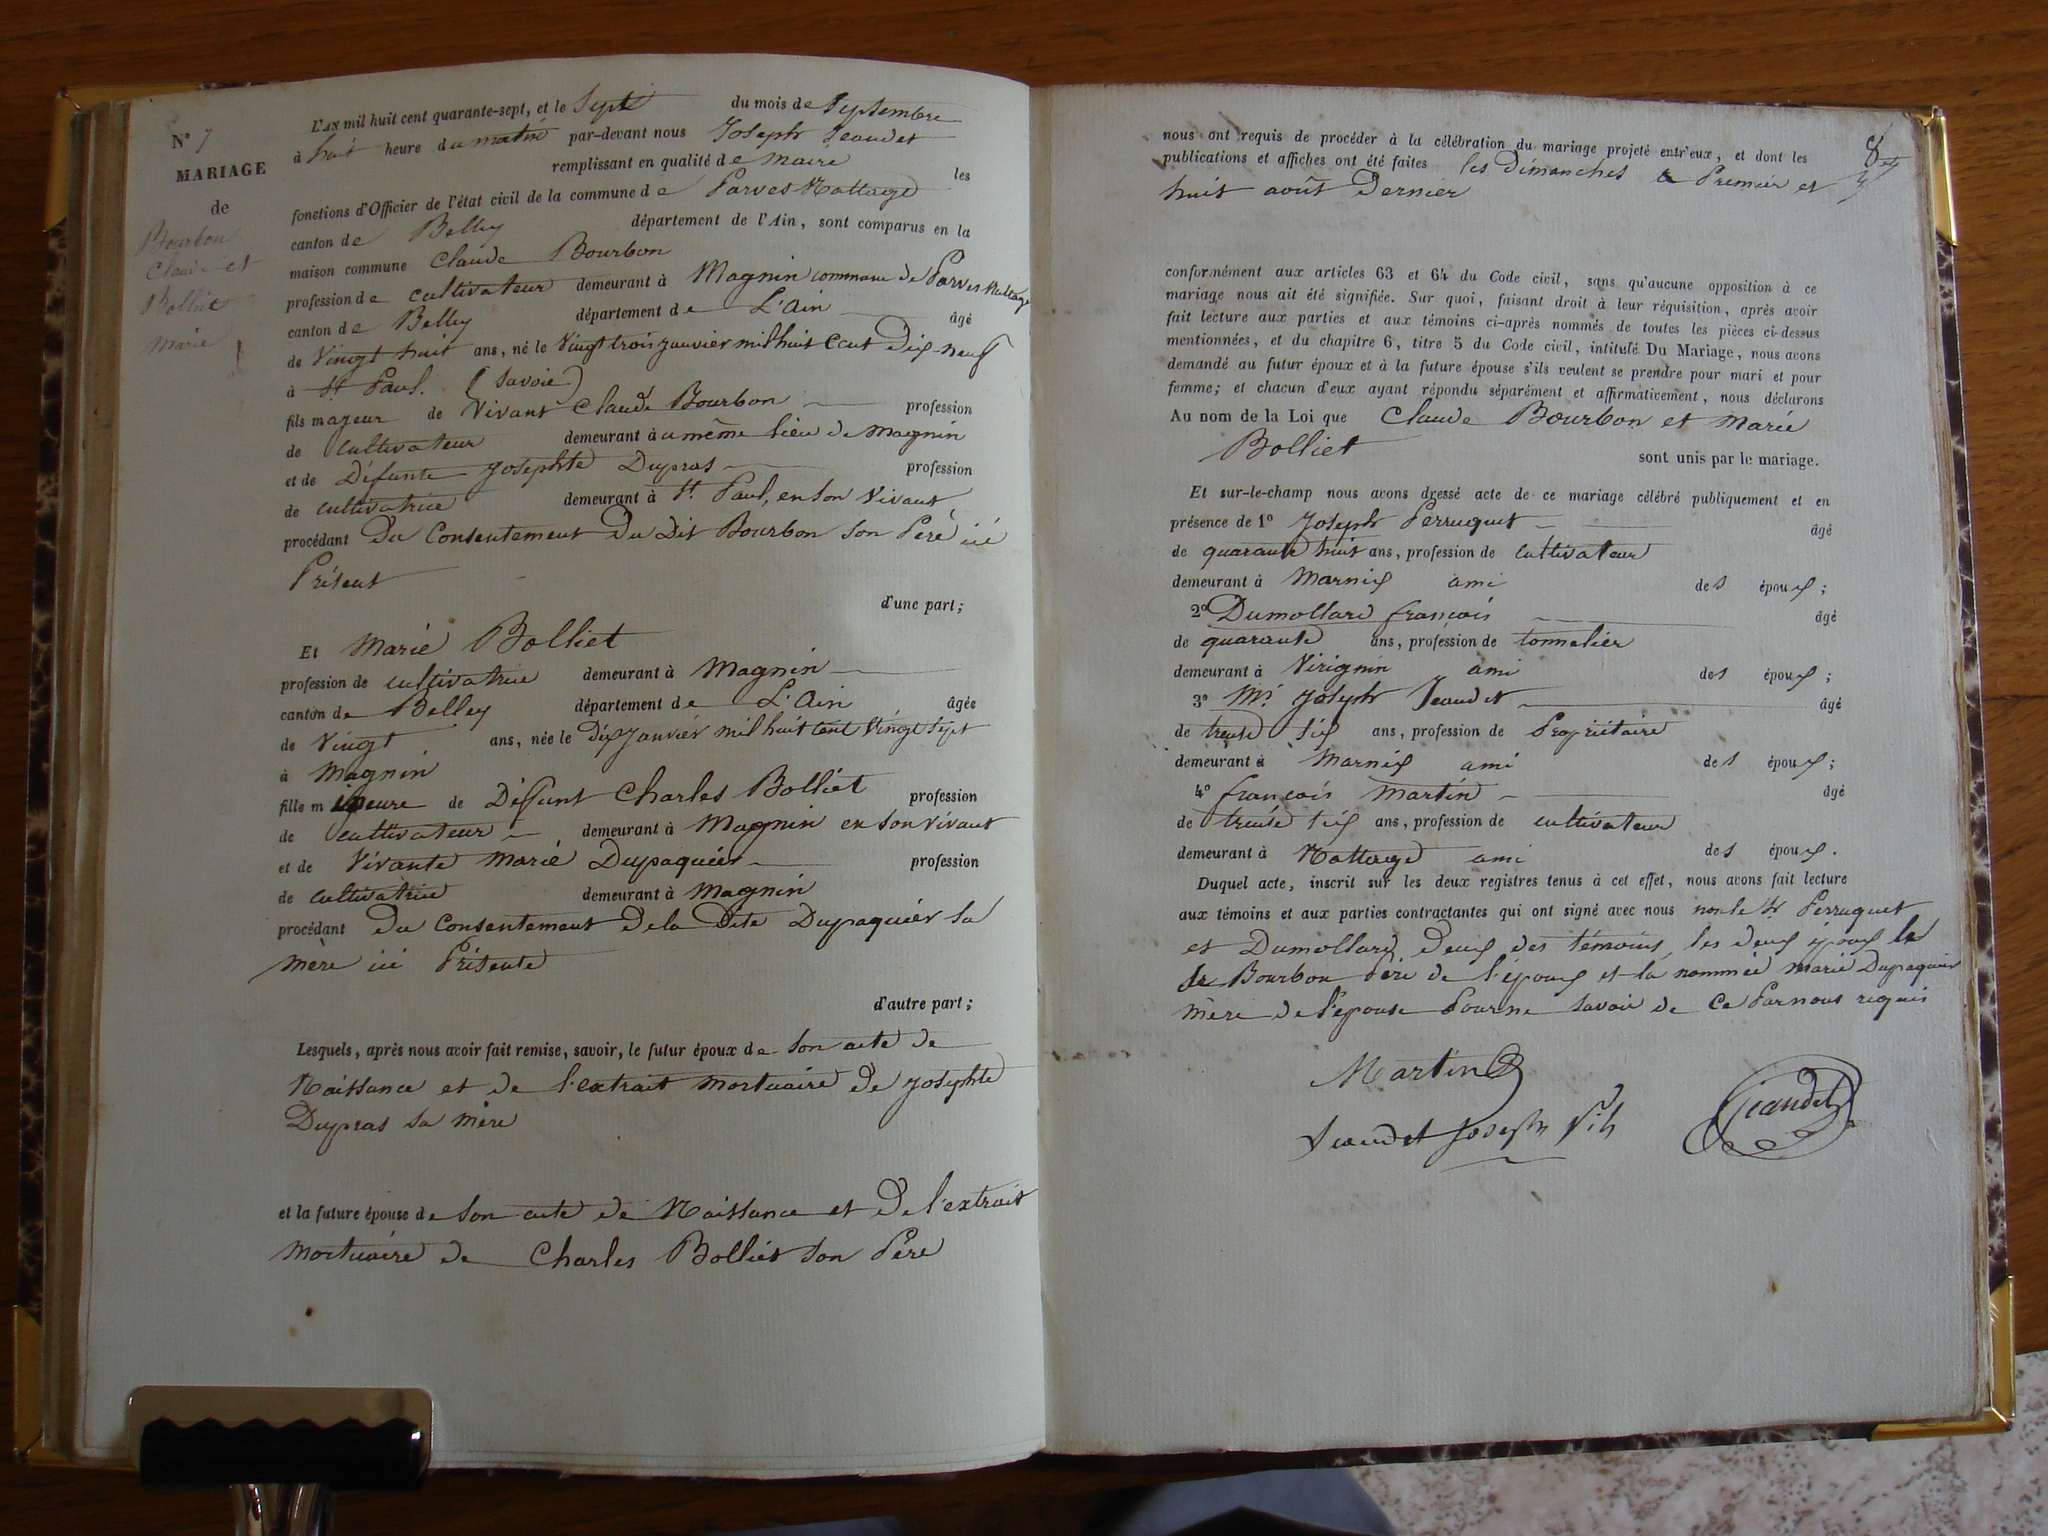 N° 7
MARIAGE
de
Bourbon
Claude et
Bolliet
marie
L'AN mil huit cent quarante-sept, et le Sept du mois de Septembre
à huit heure du matin par-devant nous Joseph Jeandet
remplissant en qualité de maire les
fonctions d'Officier de l'état civil de la commune de Parves Nattage
canton de Belley département de l'Ain, sont comparus en la
maison commune Claude Bourbon
profession de cultivateur demeurant à Magnin commune de Parves Nattage
canton de Belley département de L'Ain âgé
de Vingt huit ans, né le Vingt trois janvier mil huit cent Dix-neuf
à St Paul. (Savoie)
fils majeur de Vivant Claude Bourbon profession
de cultivateur demeurant au même lieu de Magnin
et de Défunte Josephte Dupras profession
de cultivatrice demeurant à St Paul, en son vivant
procédant Du Consentement Du Dit Bourbon son Père ici
Présent
d'une part;
Et Marie Bolliet
profession de cultivatrice demeurant à Magnin
canton de Belley département de L'Ain âgée
de Vingt ans, née le Dix Janvier mil huit cent Vingt Sept
à Magnin
fille mineure de Défunt Charles Bolliet profession
de cultivateur demeurant à Magnin en son vivant
et de Vivante Marie Dupaquier profession
de cultivatrice demeurant à Magnin
procédant Du Consentement De la Dite Dupaquier sa
mère ici Présente
d'autre part;
Lesquels, après nous avoir fait remise, savoir, le futur époux de Son acte de
Naissance et de l'extrait mortuaire de Josephte
Dupras sa mère
et la future épouse de Son acte de Naissance et De l'extrait
mortuaire de Charles Bolliet son Père
8
nous ont requis de procéder à la célébration du mariage projeté entr'eux, et dont les
publications et affiches ont été faites les Dimanches Premier et
huit août Dernier
conformément aux articles 63 et 64 du Code civil, sans qu'aucune opposition à ce
mariage nous ait été signifiée. Sur quoi, faisant droit à leur réquisition, après avoir
fait lecture aux parties et aux témoins ci-après nommés de toutes les pièces ci-dessus
mentionnées, et du chapitre 6, titre 5 du Code civil, intitulé Du Mariage, nous avons
demandé au futur époux et à la future épouse s'ils veulent se prendre pour mari et pour
femme; et chacun d'eux ayant répondu séparément et affirmativement, nous déclarons
Au nom de la Loi que Claude Bourbon et Marie
Bolliet sont unis par le mariage.
Et sur-le-champ nous avons dressé acte de ce mariage célébré publiquement et en
présence de 1° Joseph Perruquet âgé
de quarante huit ans, profession de cultivateur
demeurant à Marnix ami des époux;
2° Dumollard françois âgé
de quarante ans, profession de tonnelier
demeurant à Virignin ami des époux;
3° Mr Joseph Jeandet âgé
de trente six ans, profession de Propriétaire
demeurant à Marnix ami des époux;
4° françois Martin âgé
de trente six ans, profession de cultivateur
demeurant à Nattage ami des époux.
Duquel acte, inscrit sur les deux registres tenus à cet effet, nous avons fait lecture
aux témoins et aux parties contractantes qui ont signé avec nous non le Sr Perruquet
et Dumollard, Deux des témoins, les deux époux le
Sr Bourbon Père de l'époux et la nommée Marie Dupaquier
mère de l'épouse Pour ne savoir de ce Par nous requis
Martin
Jeandet Joseph fils
Jeandet